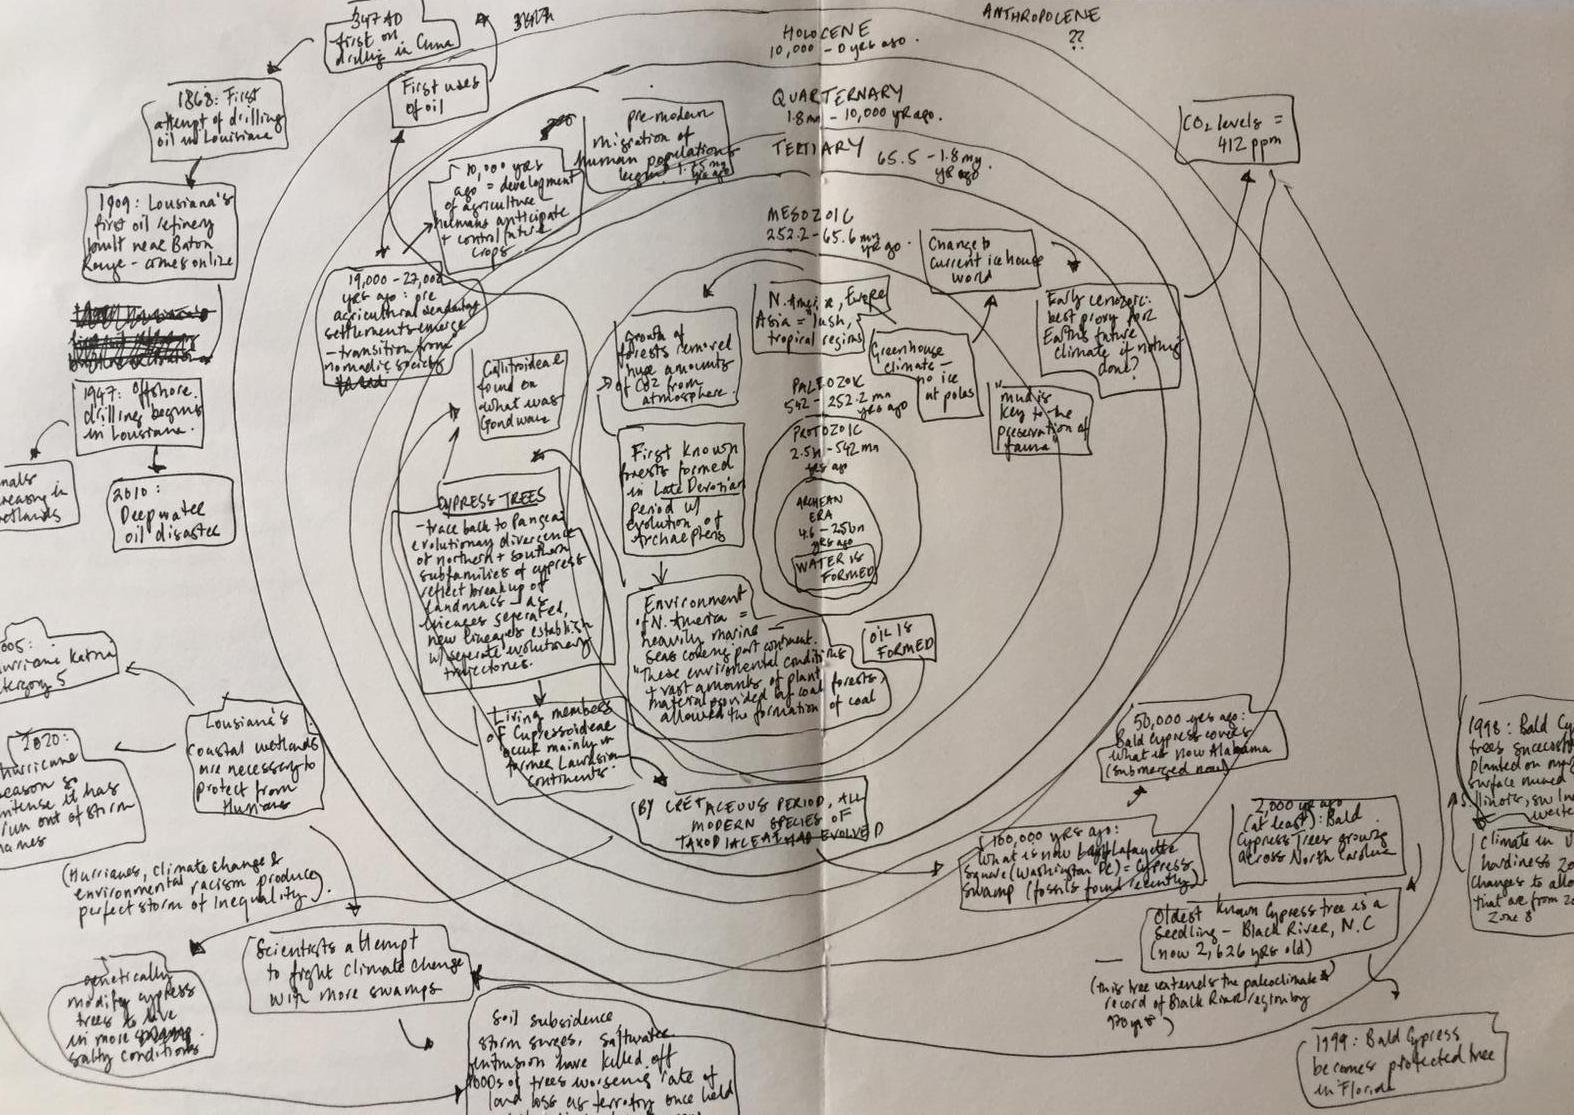 347 AD
first oil
drilling in China
First uses
of oil
1868: First
attempt of drilling
oil in Louisiane
1909: Lousiana's
first oil refinery
built near Baton
Rouge - comes online
1947: Offshore
drilling begins
in Lousiana.
2010:
Deepwater
oil disaster
HOLOCENE
10,000 - 0 yrs ago.
ANTHROPOCENE
??
QUARTERNARY
1.8mn - 10,000 yr ago.
TERTIARY 65.5 - 1.8my
yr ago.
MESOZOIC
252.2 - 65.6 my
yr ago.
PALEOZOIC
542 - 252.2 mn
yrs ago
PROTOZOIC
2.5bn - 542 mn
yrs ago
ARCHEAN
ERA
4.6 - 2.5bn
yrs ago
WATER IS
FORMED
pre-modern
migration of
human populations
yr ago
10,000 yrs
ago = development
of agriculture -
humans anticipate
+ control future
crops
19,000 - 27,000
yrs ago: pre
agricultural sedentary
settlements emerge
- transition from
nomadic society
Callitroideae
found on
what was
Gondwana
Growth of
forests removed
huge amounts
of CO2 from
atmosphere.
N. America, Europe
Asia = lush,
tropical regions
Greenhouse
climate -
no ice
at poles
Change to
current ice house
world
Early cenozoic:
best proxy for
Earth's future
climate if nothing
done?
CO2 levels =
412 ppm
"mud is
key to the
preservation of
fauna"
First known
forests formed
in Late Devonian
period w/
evolution of
Archaepteris
CYPRESS TREES
- trace back to Pangea
evolutionary divergence
of northern + southern
subfamilies of cypress
reflect breakup of
landmass - as
lineages seperated,
new lineages establish
w/ seperate evolutionary
trajectories.
Environment
of N. America =
heavily marine -
seas covering part continent.
"These enviromental conditions
+ vast amounts of plant
material provided by coal forests,
allowed the formation of coal
OIL IS
FORMED
Living members
of Cupressoideae
occur mainly in
former Laurasian
continents.
(BY CRETACEOUS PERIOD, ALL
MODERN SPECIES OF
TAXODIACEAE HAD EVOLVED
2005:
Hurricane Katrina
category 5
2020:
hurricane
season so
intense it has
run out of storm
names
Lousiana's
coastal wetlands
are necessary to
protect from
(Hurricanes, climate change &
environmental racism produce
perfect storm of inequality).
Scientists attempt
to fight climate change
with more swamps
genetically
modify cypress
trees to live
in more
salty conditions
Soil subsidence
storm surges, saltwater
intrusion have killed off
1000s of trees worsening rate of
land loss as territory once held
50,000 yrs ago:
Bald Cypress covers
what is now Alabama
(submerged now)
100,000 yrs ago:
What is now Lafayette
Square (Washington DC) = Cypress
swamp (fossils found recently)
2,000 yr ago
(at least): Bald
Cypress Trees growing
across North Carolina
Oldest known Cypress tree is a
seedling - Black River, N.C
(now 2,626 yrs old)
(this tree extends the paleoclimate
record of Black River region by
970 yrs)
1999: Bald Cypress
becomes protected tree
in Florida
1998: Bald Cy
trees successf
planted on
surface mined
Climate in U
hardiness zo
changes to allo
that are from zo
Zone 8